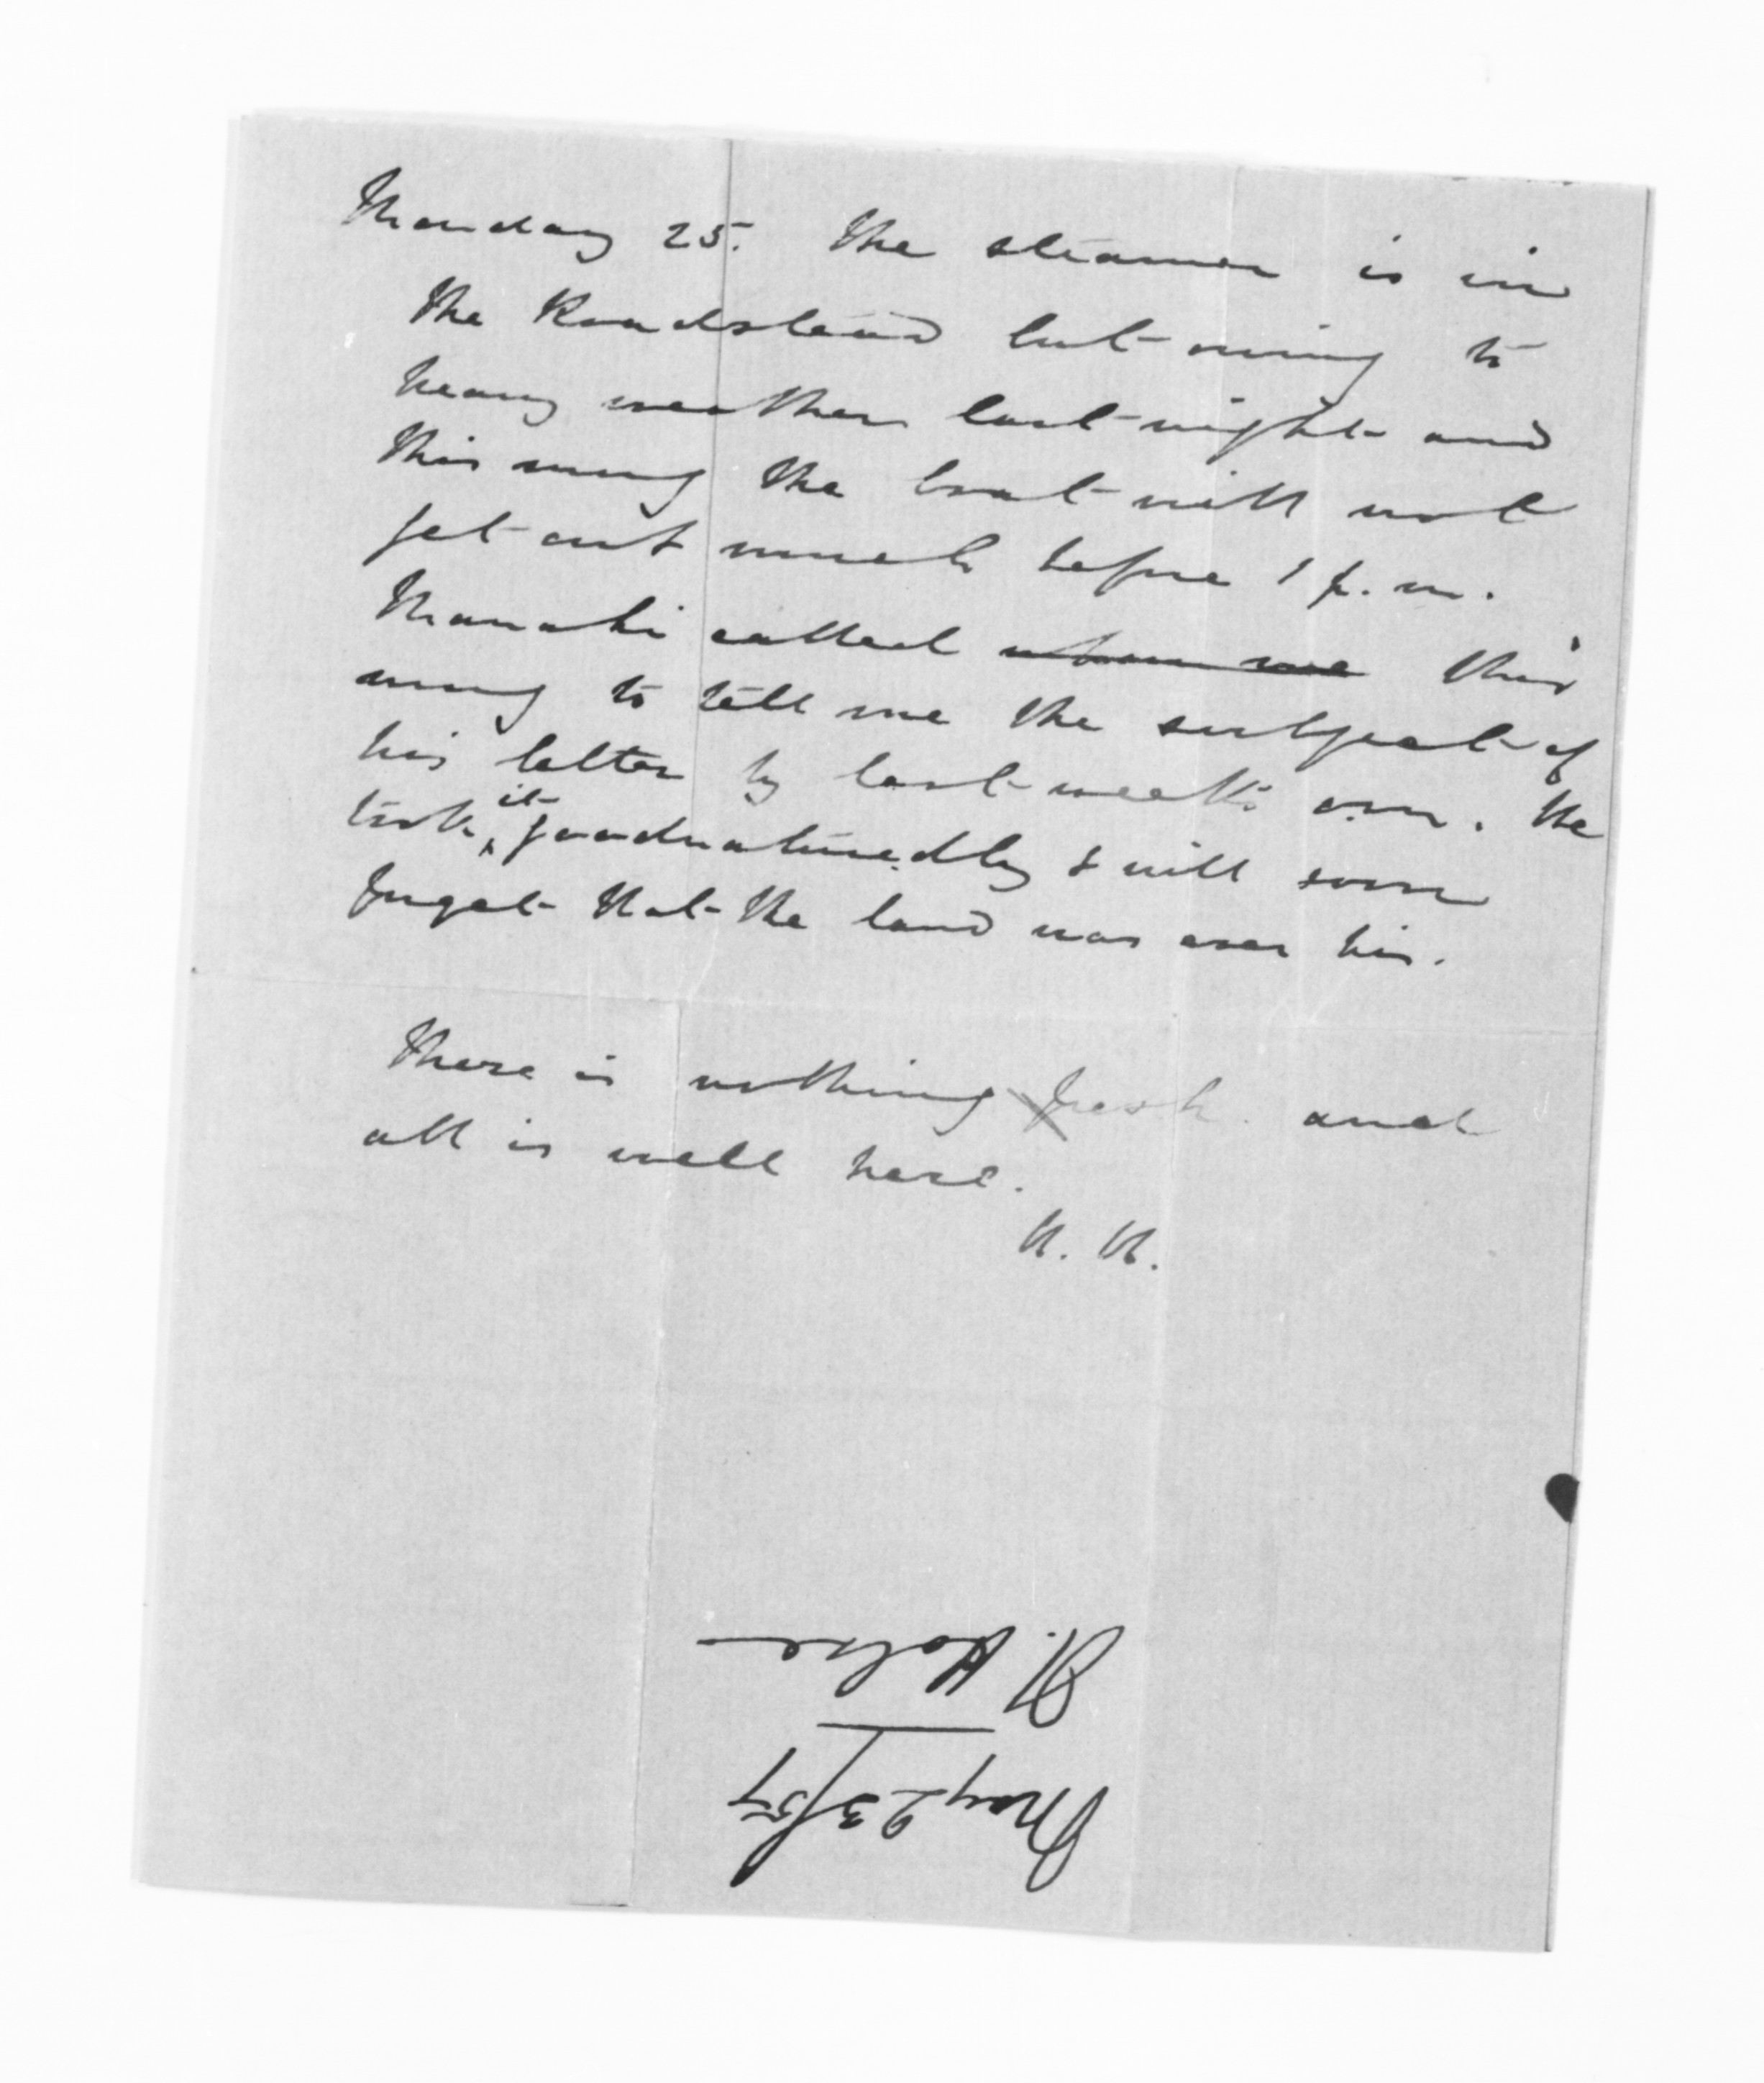 Monday 25. The steamer is in
the Roadstead but owing to
heavy weather last night and
this morng the boat will not
get out much before 1 p.m.
Manahi called when we this
morng to tell me the subject of
his letter by last week's over. He
took it goodnaturedly & will soon
forget that the land was ever his.
There is nothing fresh and
all is well here.
H. H.
H. Halse
May 23/57